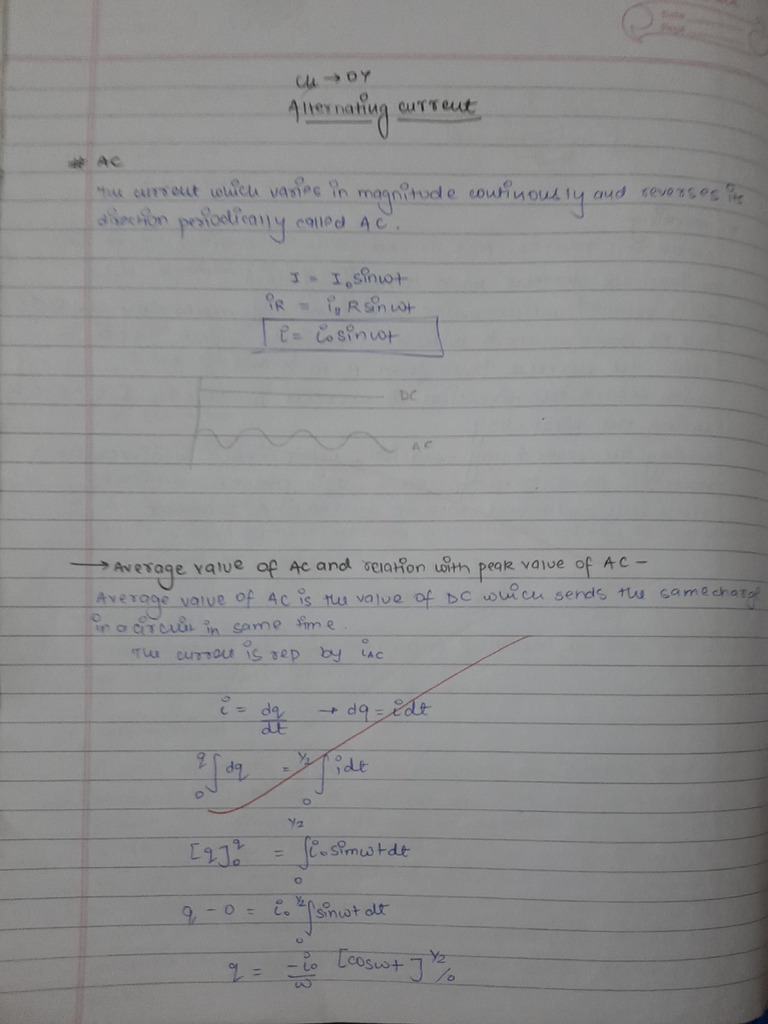 Date
Page
Ch → 07
Alternating current
# AC
The current which varies in magnitude continuously and reverses its
direction periodically called AC.
I = I₀sinωt
iR = i₀ R sinωt
i = i₀sinωt
DC
AC
→ Average value of AC and relation with peak value of AC –
Average value of AC is the value of DC which sends the same charge
in a circuit in same time.
The current is rep by iAC
i = dq/dt → dq = idt
q∫0 dq = Y2∫0 idt
[q]q0 = Y2∫0 i₀ sinωt dt
q - 0 = i₀ Y2∫0 sinωt dt
q = -i₀/ω [cosωt] Y2/0